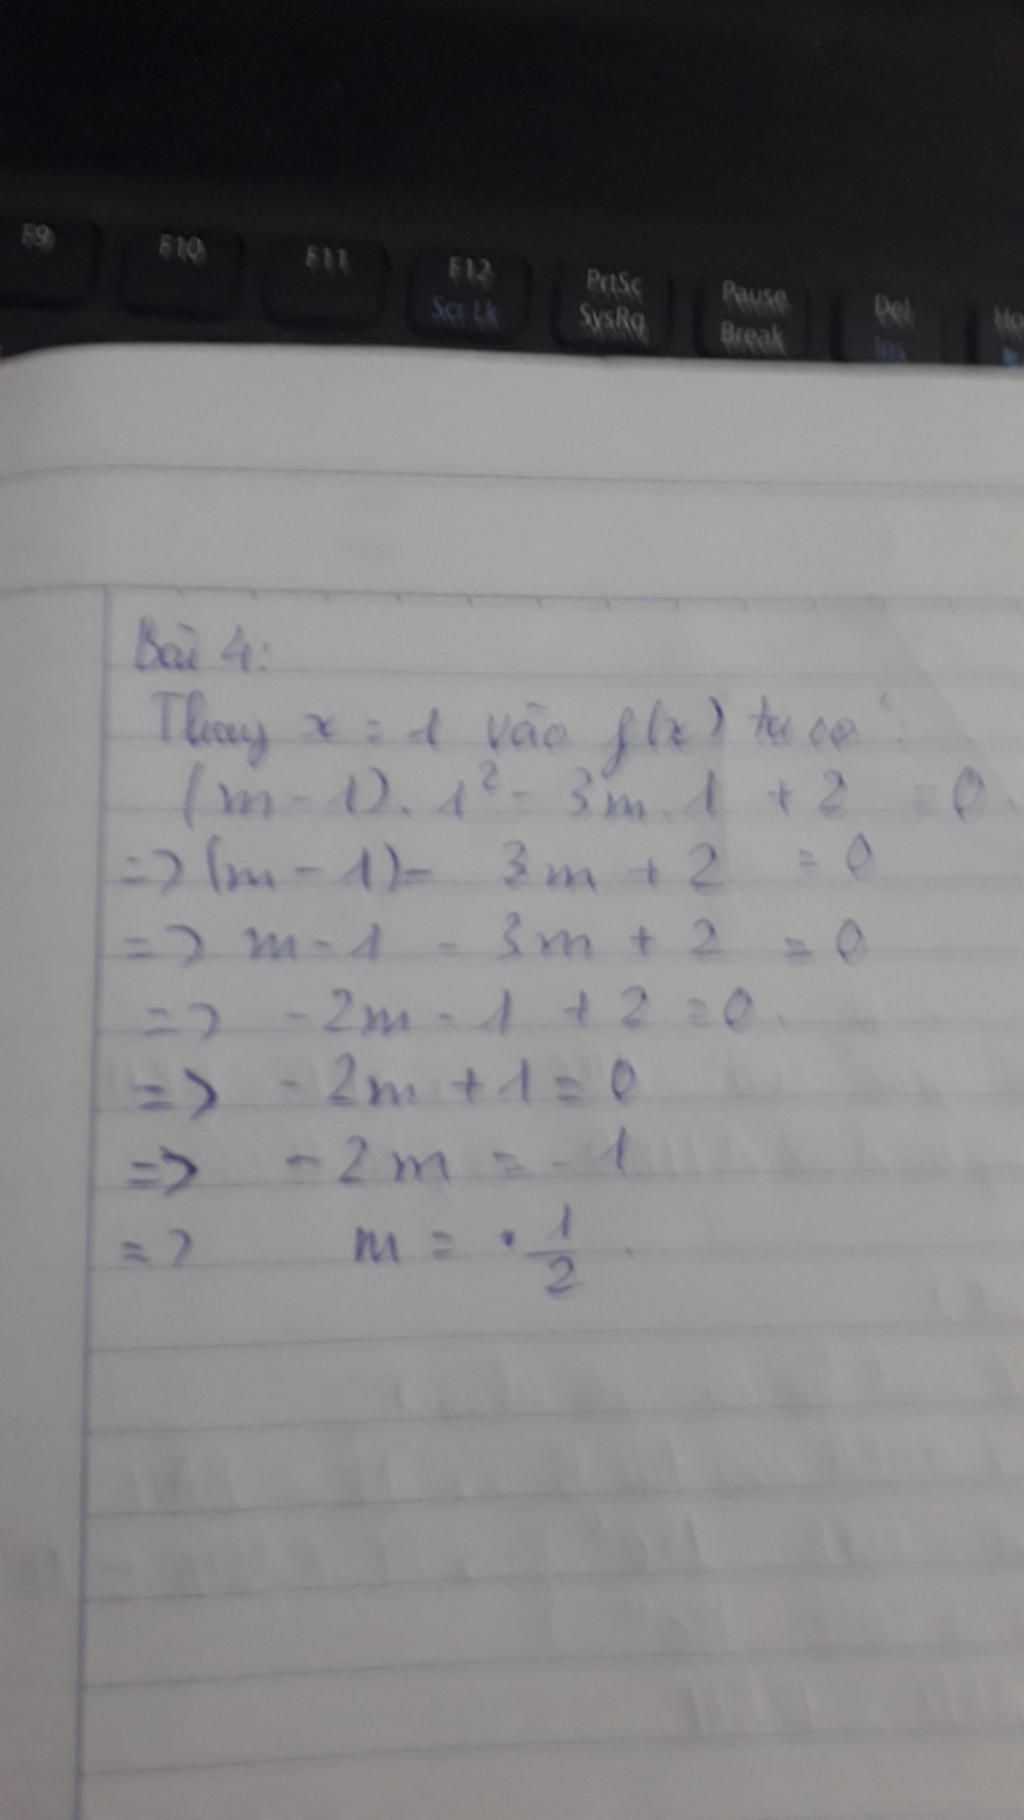 F9 F10 F11 F12 PrtSc Pause Del Ho
Scr Lk SysRq Break Ins
Bài 4:
Thay x = 1 vào f(x) ta có:
(m - 1). 1² - 3m. 1 + 2 = 0.
=> (m - 1) - 3m + 2 = 0
=> m - 1 - 3m + 2 = 0
=> - 2m - 1 + 2 = 0.
=> - 2m + 1 = 0
=> - 2m = - 1
=> m = 1/2.